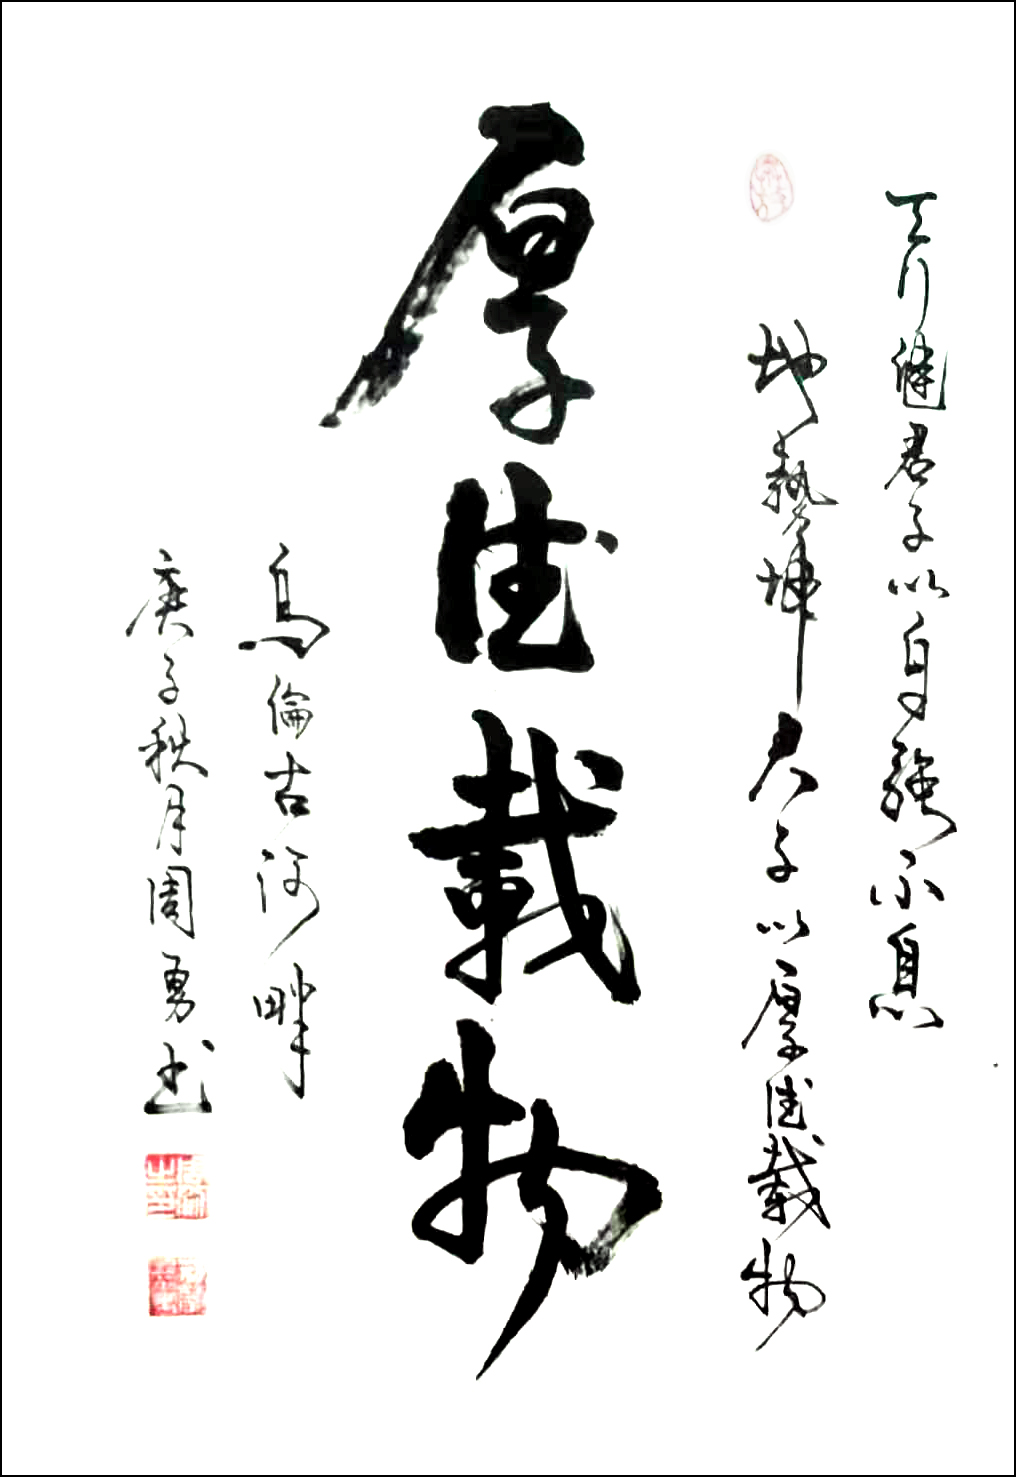 天行健君子以自強不息
地勢坤君子以厚德載物
厚德載物
烏倫古河畔
庚子秋月周勇书